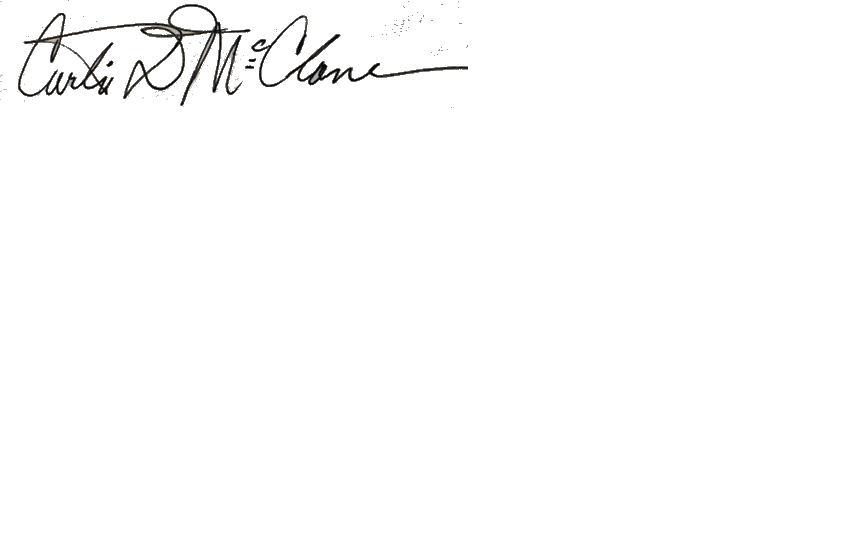 Curtis D McClane